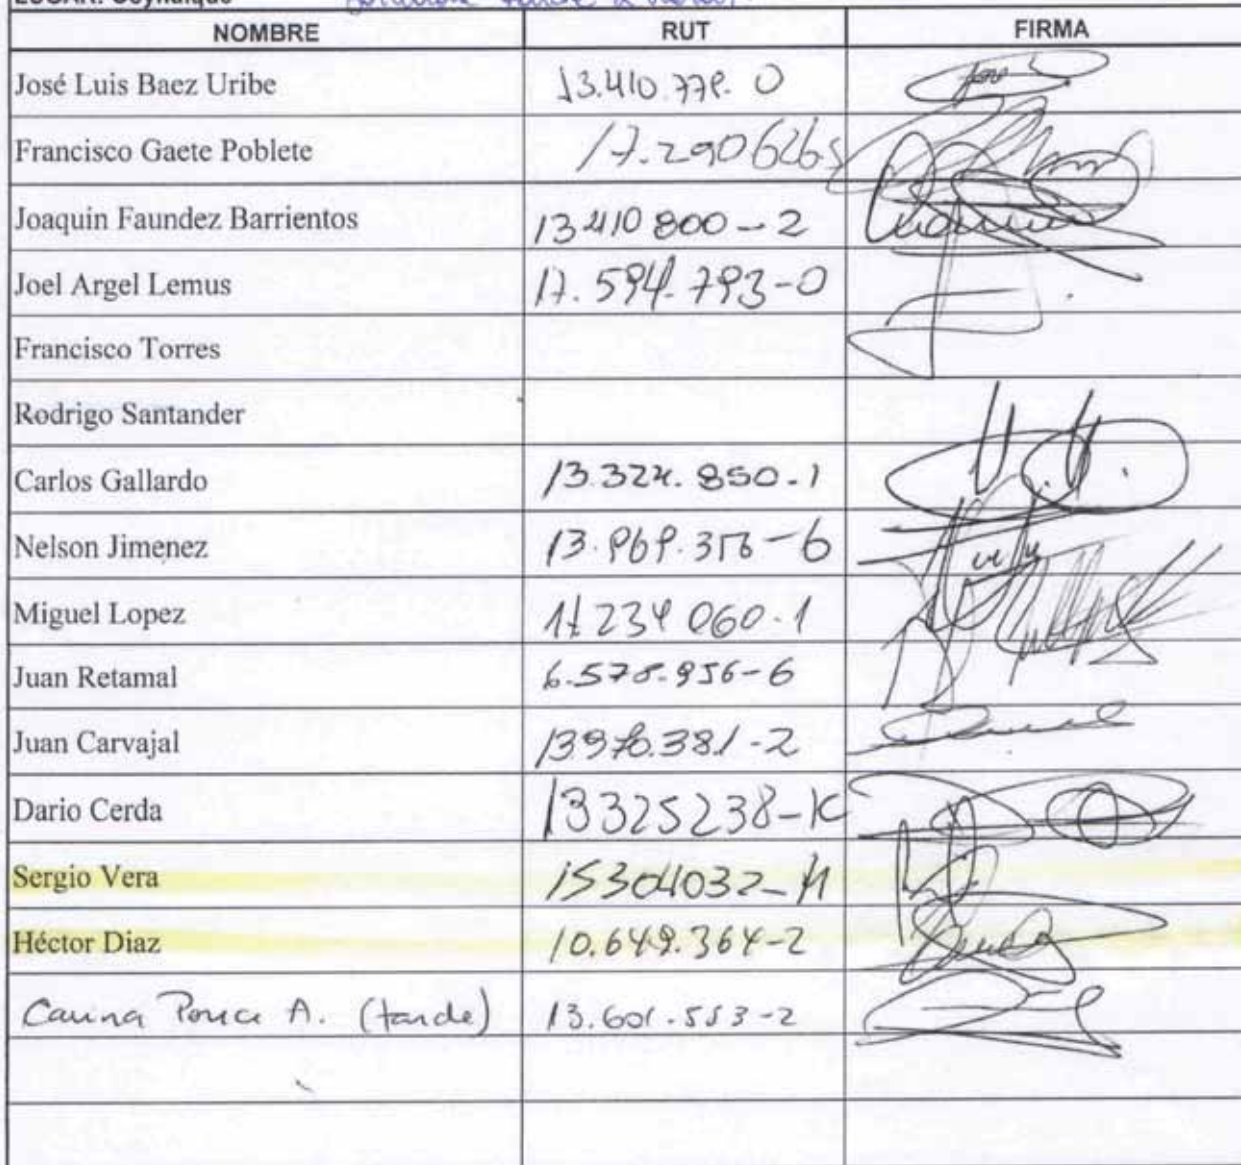 LUGAR: Coyhaique
NOMBRE RUT FIRMA
José Luis Baez Uribe 13.410.779-0
Francisco Gaete Poblete 17.290626-5
Joaquin Faundez Barrientos 13410800-2
Joel Argel Lemus 17.594.793-0
Francisco Torres
Rodrigo Santander
Carlos Gallardo 13.324.850-1
Nelson Jimenez
Miguel Lopez
Juan Retamal 6.578.956-6
Juan Carvajal 13970.381-2
Dario Cerda 13325238-K
Sergio Vera
Héctor Diaz 10.649.364-2
Carina Ponce A. (tarde) 13.601.553-2